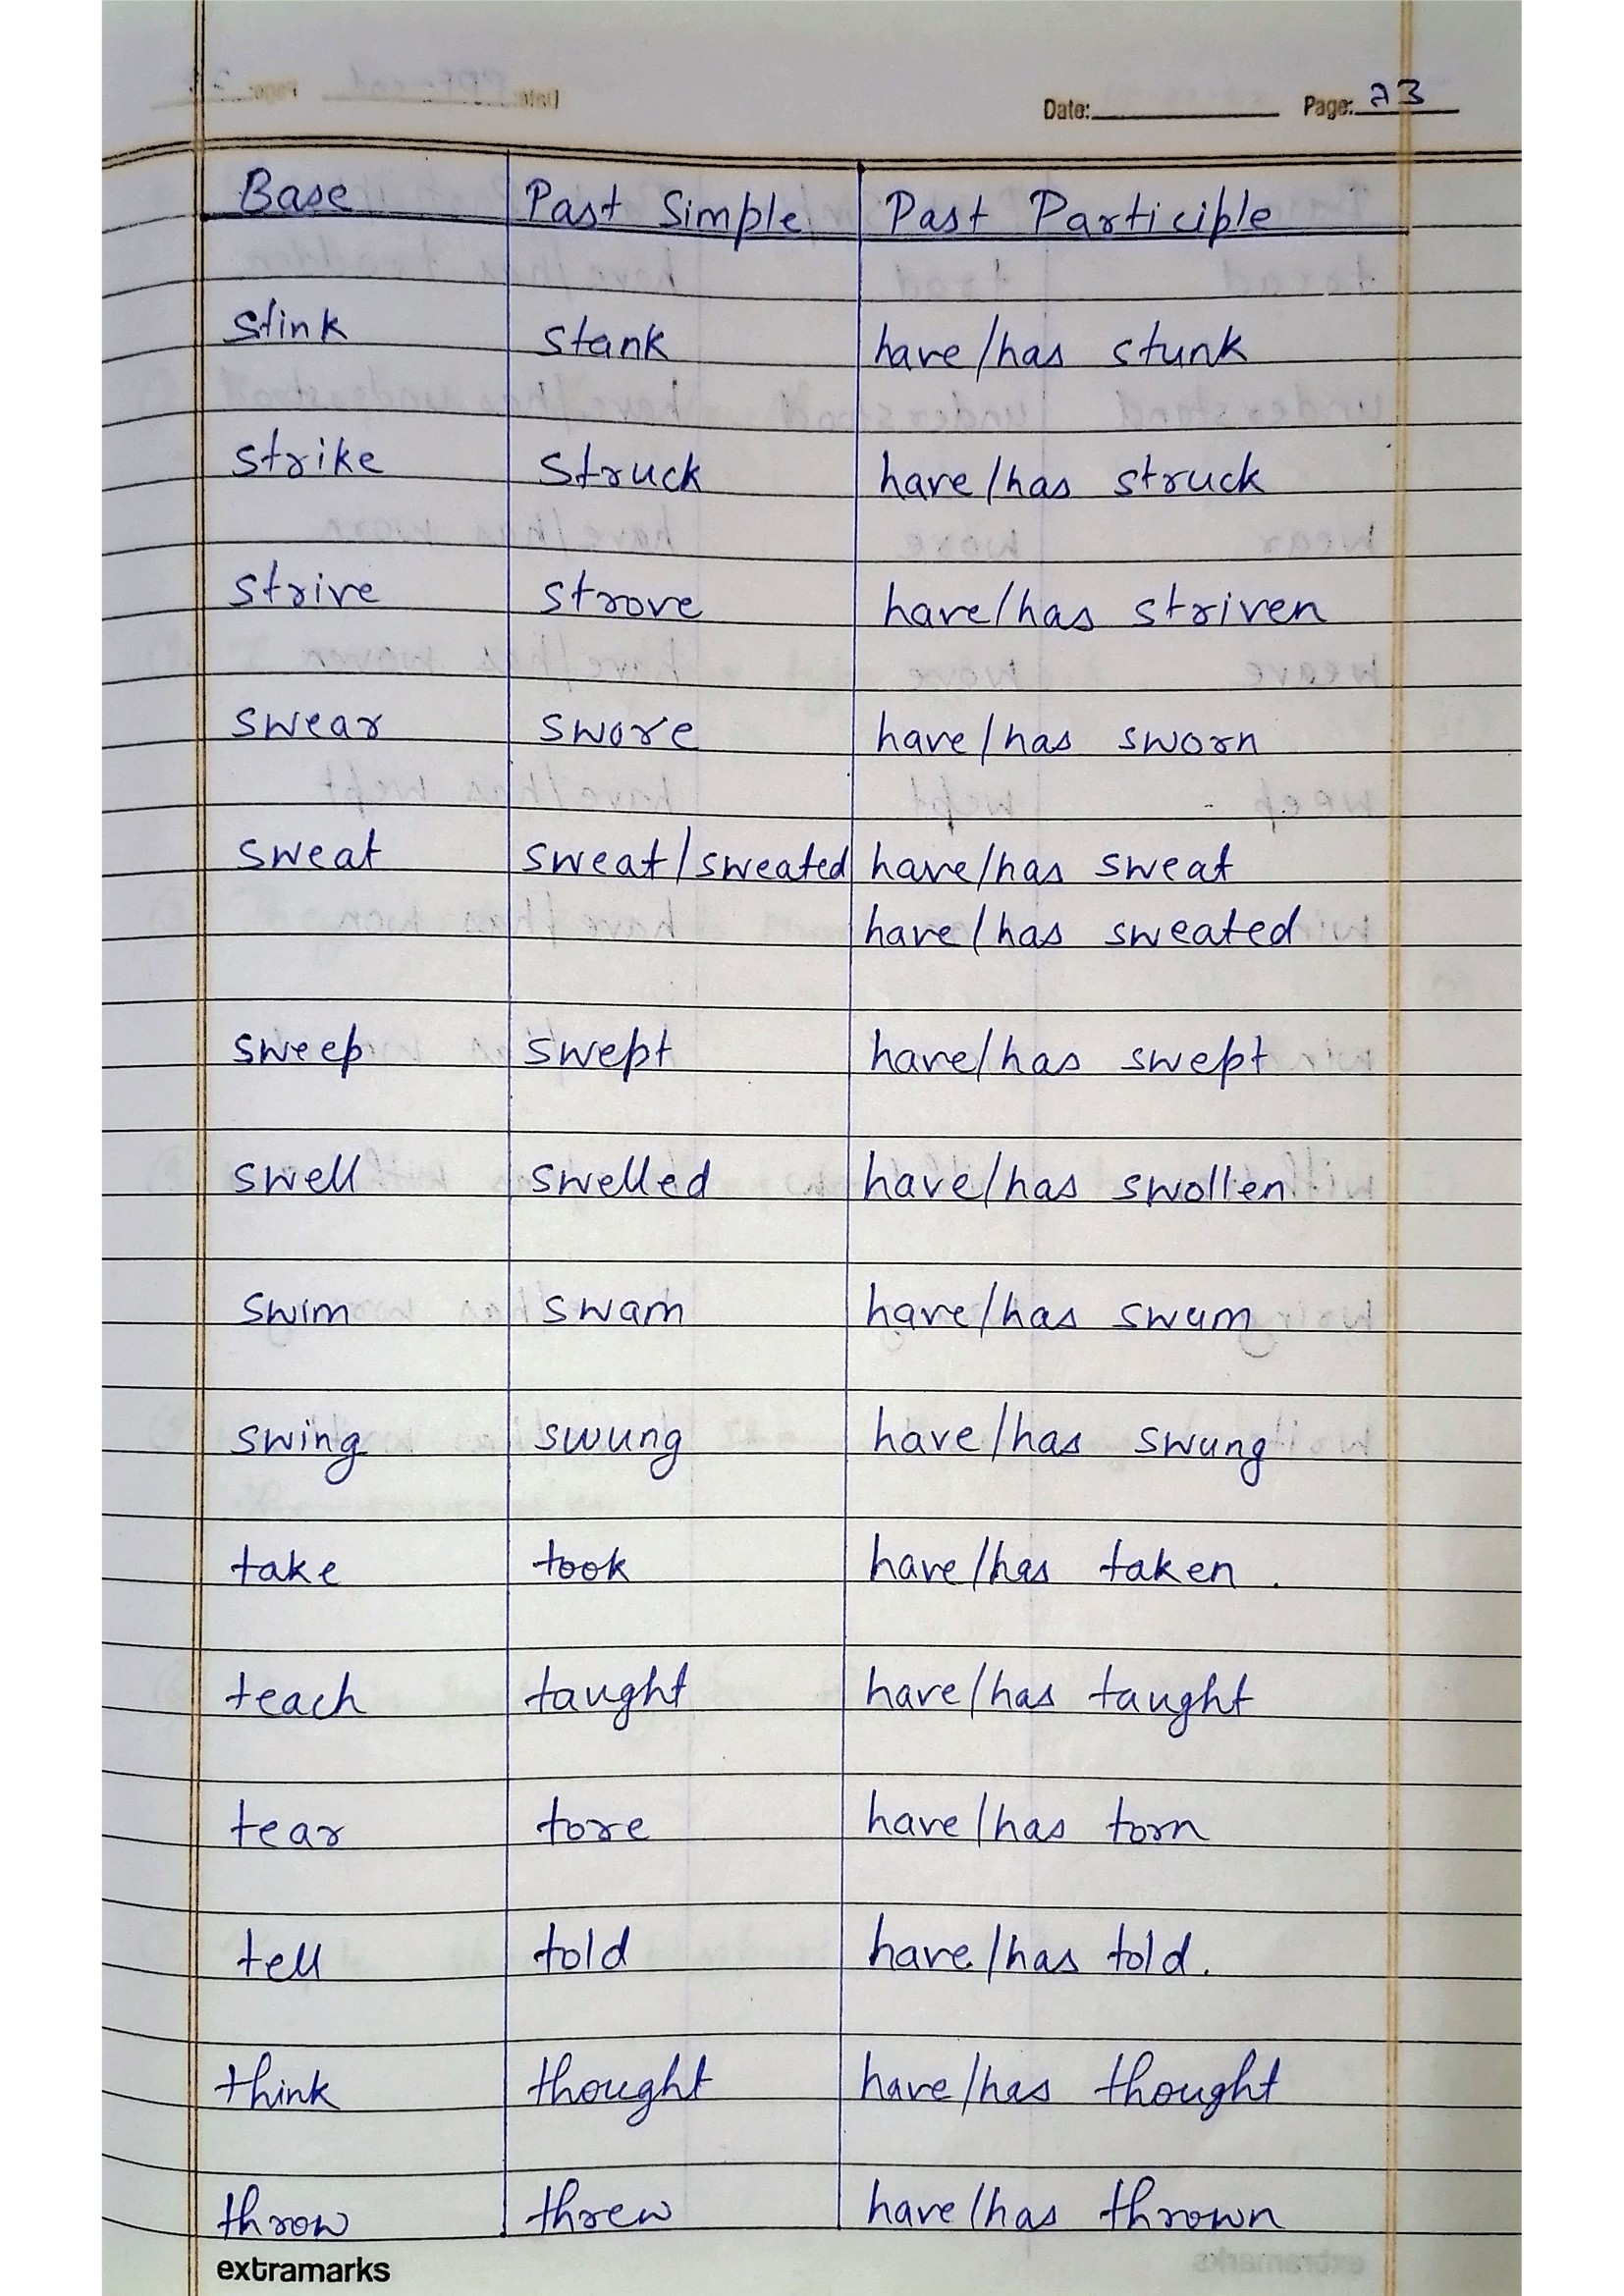 Date: Page: 23
Base Past Simple Past Participle
stink stank have/has stunk
strike struck have/has struck
strive strove have/has striven
swear swore have/has sworn
sweat sweat/sweated have/has sweat
have/has sweated
sweep swept have/has swept
swell swelled have/has swollen
swim swam have/has swum
swing swung have/has swung
take took have/has taken.
teach taught have/has taught
tear tore have/has torn
tell told have/has told.
think thought have/has thought
throw threw have/has thrown
extramarks